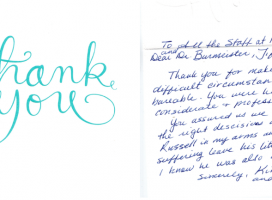 thank
you
To all the Staff at
and
Dear Dr Burmeister,
Thank you for
difficult circumstan
bareable. You were
considerate + profess
You assured us we
the right descisions
Russell in my arms an
suffering leave his
I know he was also
Sincerely, Ki
and